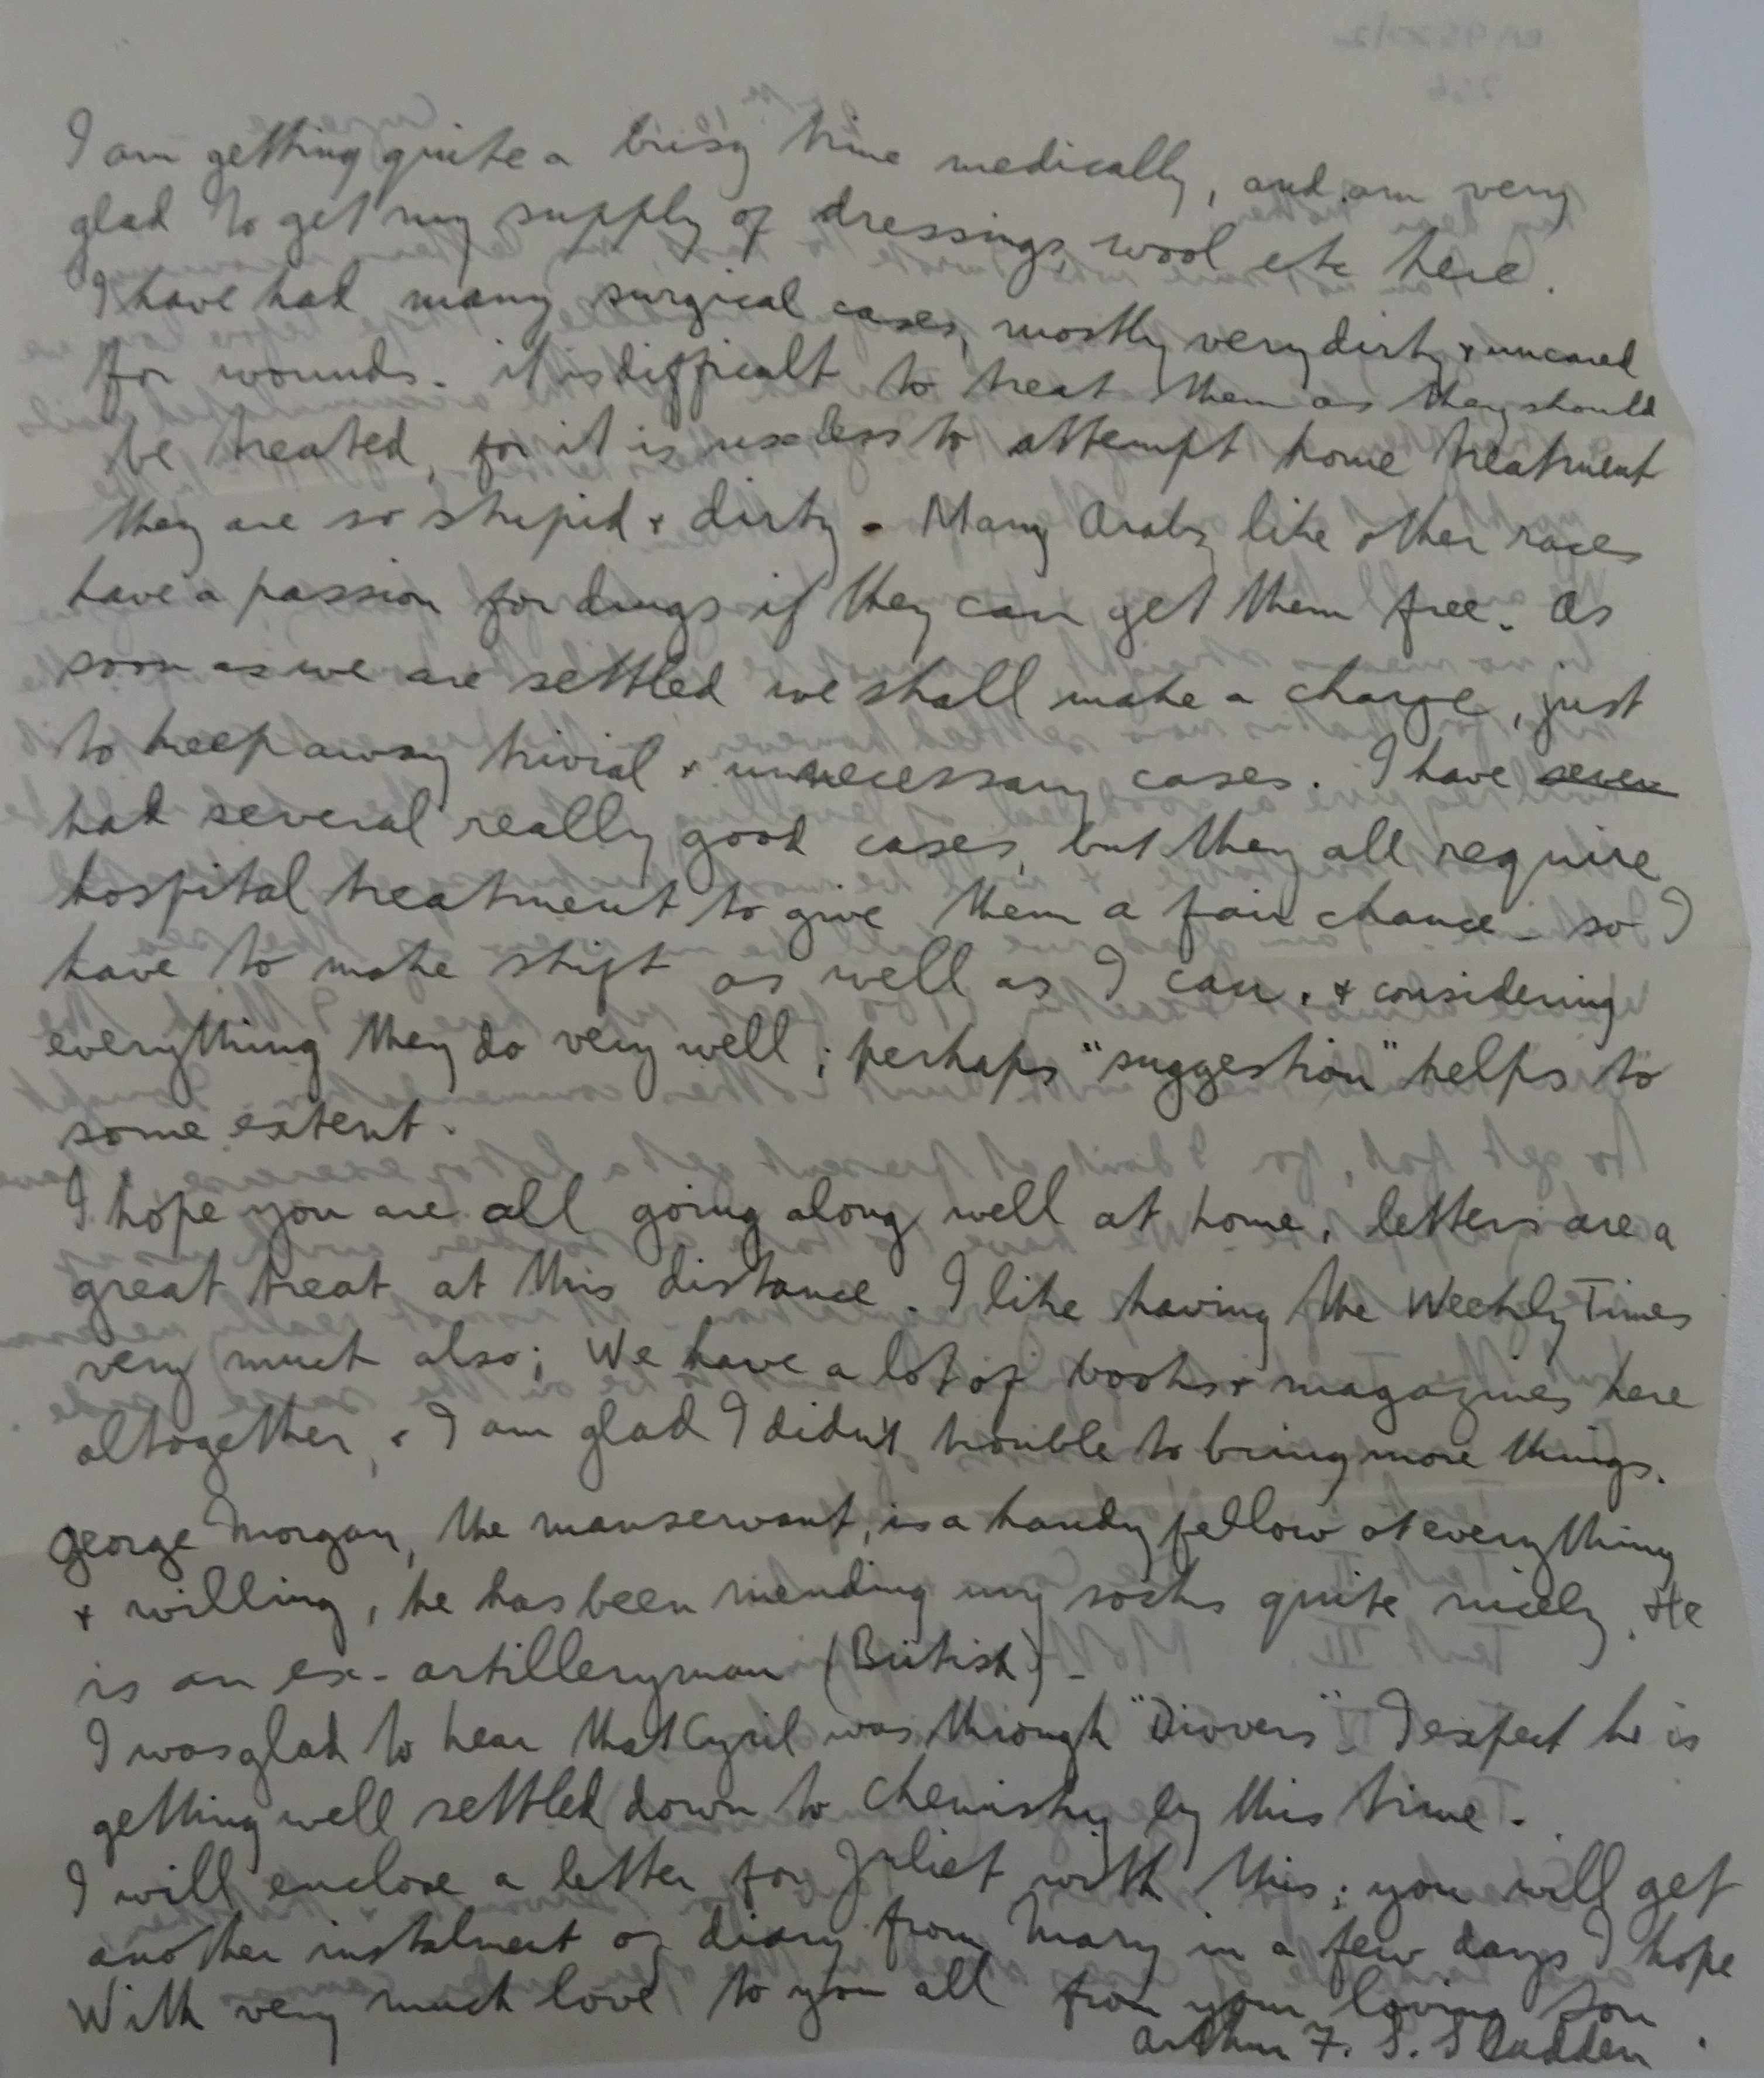 I am getting quite a busy time medically, and am very
glad to get my supply of dressings, wool etc here.
I have had many surgical cases, mostly very dirty & uncared
for wounds. it is difficult to treat them as they should
be treated, for it is useless to attempt home treatment
they are so stupid & dirty. Many Arabs like other races
have a passion for drugs if they can get them free. As
soon as we are settled we shall make a charge, just
to keep away trivial & unnecessary cases. I have seven
had several really good cases, but they all require
hospital treatment to give them a fair chance - so I
have to make shift as well as I can, & considering
everything they do very well; perhaps "suggestion" helps to
some extent.
I hope you are all going along well at home, letters are a
great treat at this distance. I like having the Weekly Times
very much also; We have a lot of books & magazines here
altogether, & I am glad I didn't trouble to bring more things.
George Morgan, the manservant, is a handy fellow at everything
& willing, he has been mending my socks quite nicely. He
is an ex-artilleryman (British) -
I was glad to hear that Cyril was through "Divvers". I expect he is
getting well settled down to Chemistry by this time.
I will enclose a letter for Juliet with this; you will get
another instalment of diary from Mary in a few days I hope
With very much love to you all from your loving son
Arthur F. S. Sladden